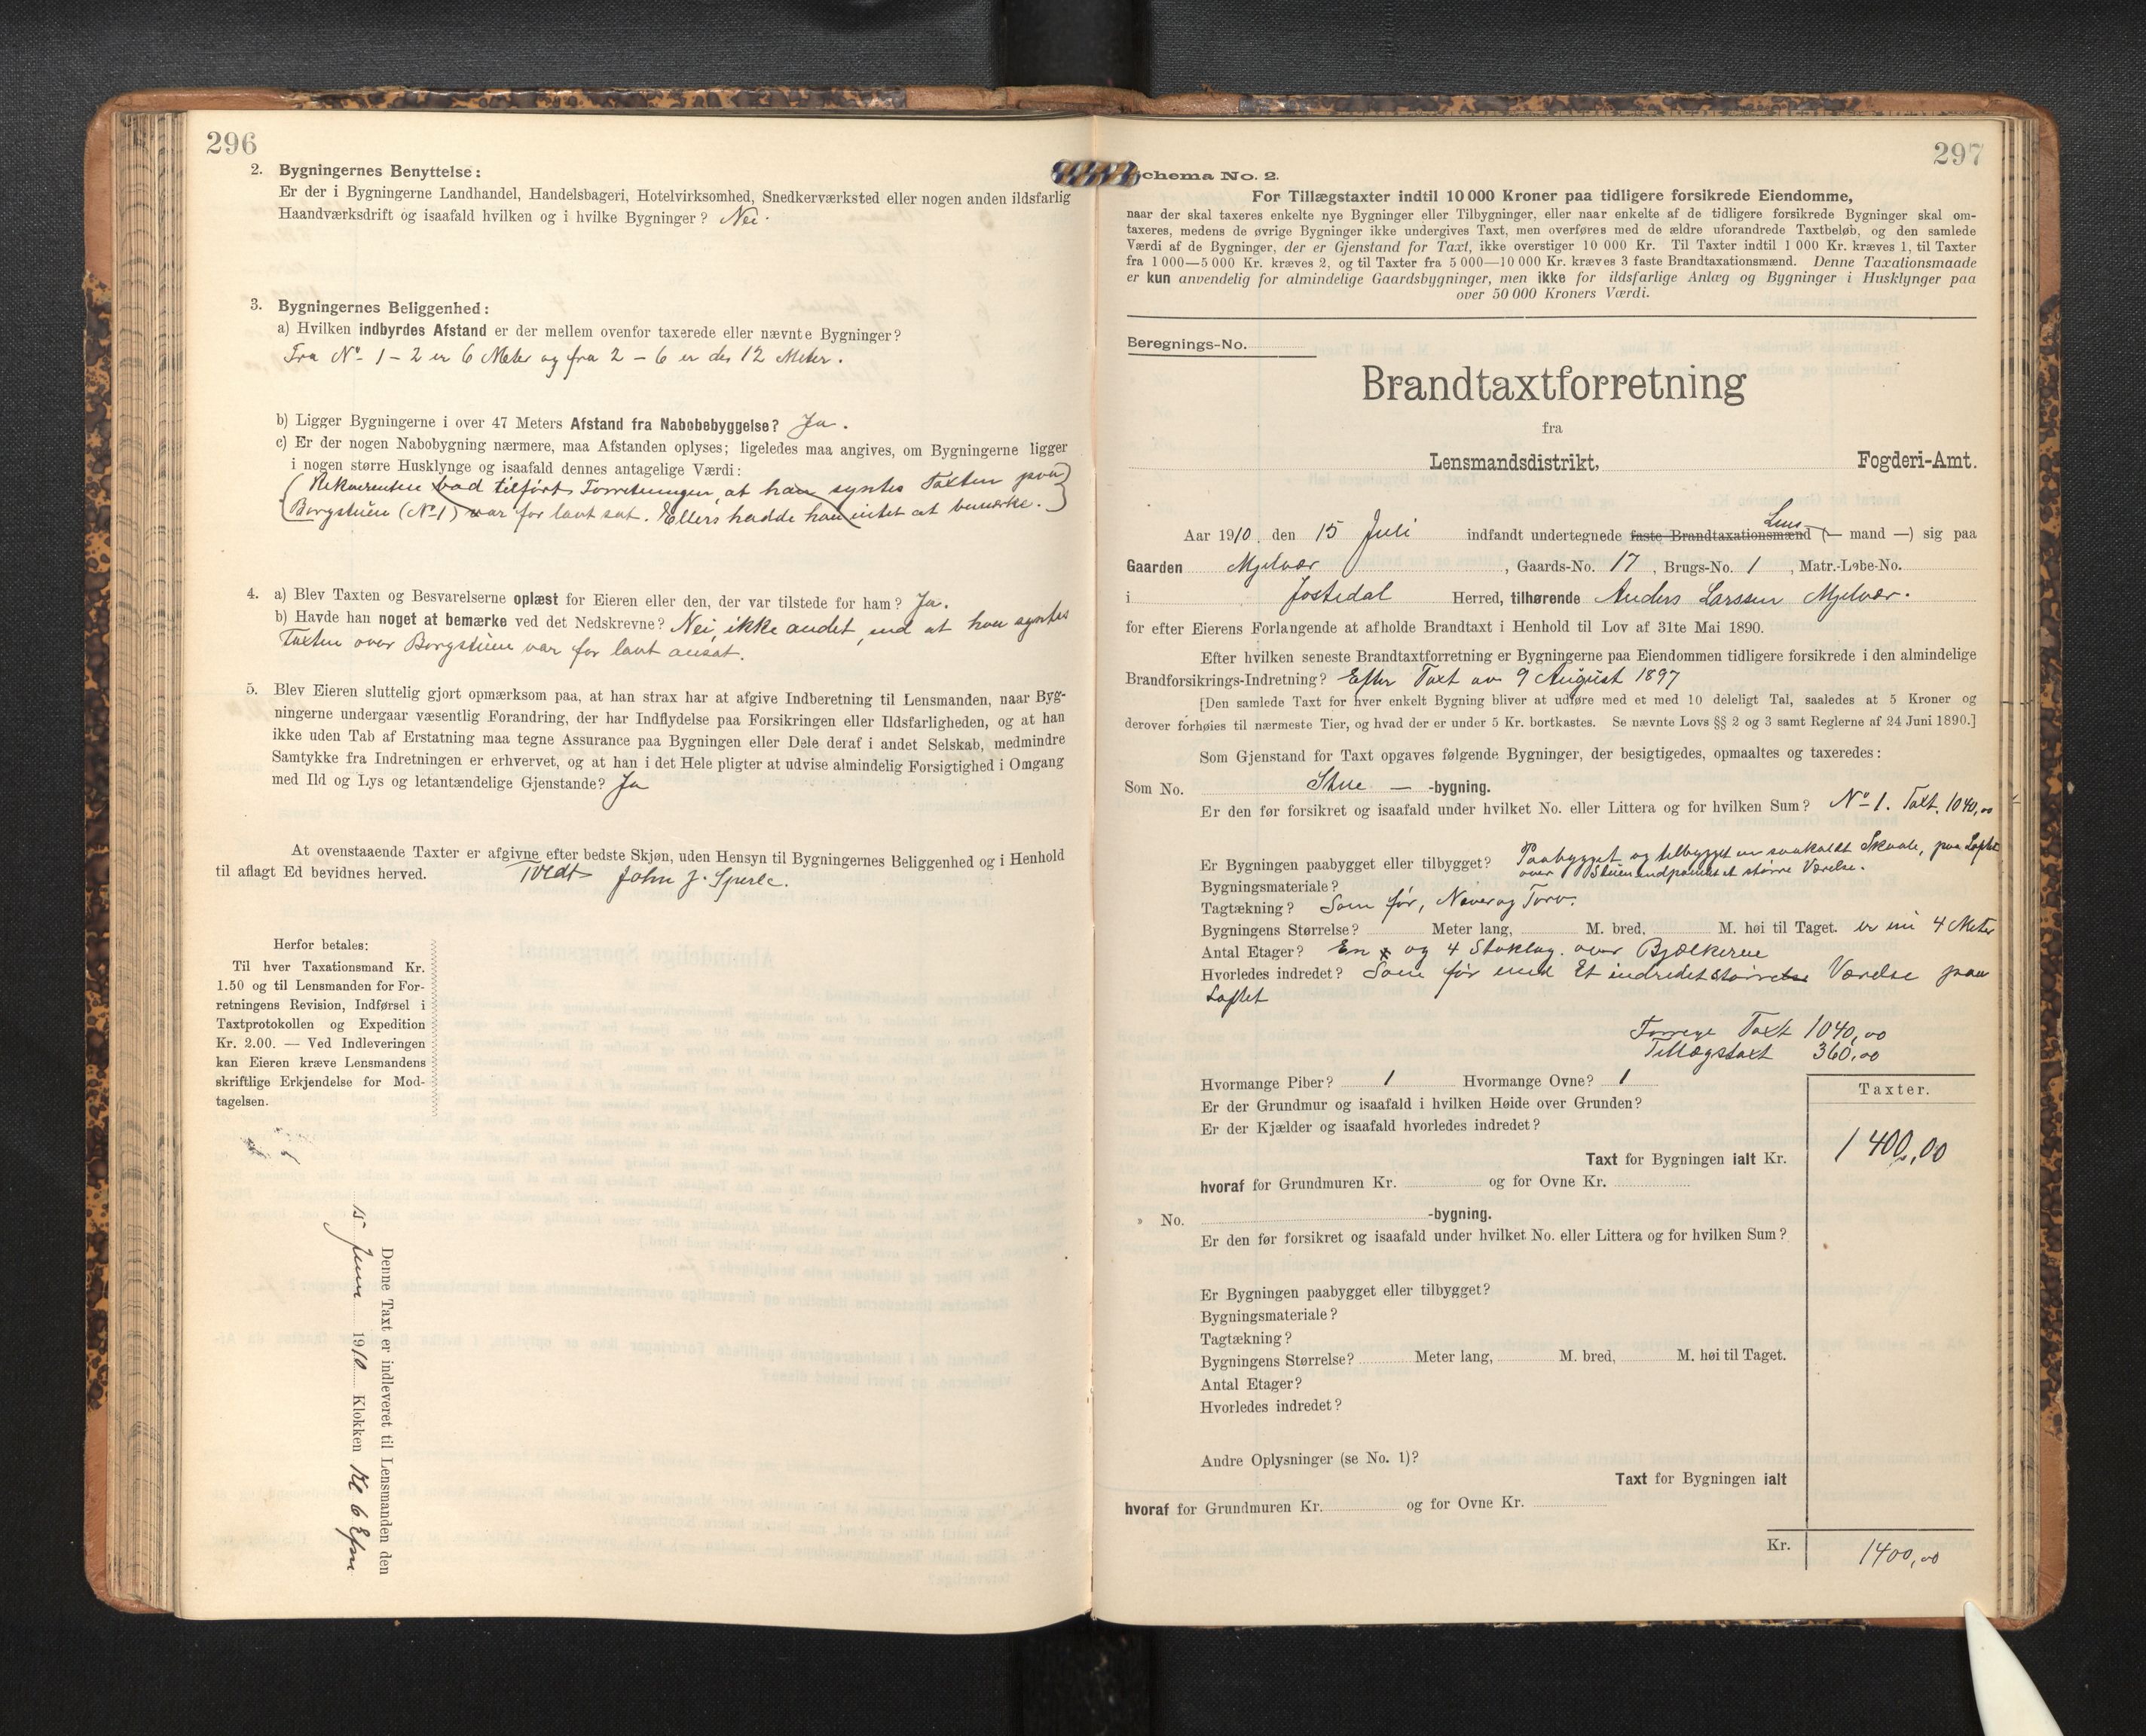 296
2. Bygningernes Benyttelse:
Er der i Bygningerne Landhandel, Handelsbageri, Hotelvirksomhed, Snedkerværksted eller nogen anden ildsfarlig
Haandværksdrift og isaafald hvilken og i hvilke Bygninger? Nei.
3. Bygningernes Beliggenhed:
a) Hvilken indbyrdes Afstand er der mellem ovenfor taxerede eller nævnte Bygninger?
Fra No 1 - 2 er 6 Meter og fra 2 - 6 er der 12 Meter.
b) Ligger Bygningerne i over 47 Meters Afstand fra Nabobebyggelse? Ja.
c) Er der nogen Nabobygning nærmere, maa Afstanden oplyses; ligeledes maa angives, om Bygningerne ligger
i nogen større Husklynge og isaafald dennes antagelige Værdi:
(Rekvirenten bad tilført Forretningen, at han syntes Taxten paa
Borgstuen (No 1) var for lavt sat. Ellers hadde han intet at bemerke.)
4. a) Blev Taxten og Besvarelserne oplæst for Eieren eller den, der var tilstede for ham? Ja.
b) Havde han noget at bemærke ved det Nedskrevne? Nei, ikke andet, end at han syntes
Taxten over Borgstuen var for lavt ansat.
5. Blev Eieren sluttelig gjort opmærksom paa, at han strax har at afgive Indberetning til Lensmanden, naar Byg-
ningerne undergaar væsentlig Forandring, der har Indflydelse paa Forsikringen eller Ildsfarligheden, og at han
ikke uden Tab af Erstatning maa tegne Assurance paa Bygningen eller Dele deraf i andet Selskab, medmindre
Samtykke fra Indretningen er erhvervet, og at han i det Hele pligter at udvise almindelig Forsigtighed i Omgang
med Ild og Lys og letantændelige Gjenstande? Ja
At ovenstaaende Taxter er afgivne efter bedste Skjøn, uden Hensyn til Bygningernes Beliggenhed og i Henhold
til aflagt Ed bevidnes herved. John J. Sperle.
Herfor betales:
Til hver Taxationsmand Kr.
1.50 og til Lensmanden for For-
retningens Revision, Indførsel i
Taxtprotokollen og Expedition
Kr. 2.00. — Ved Indleveringen
kan Eieren kræve Lensmandens
skriftlige Erkjendelse for Mod-
tagelsen.
Denne Taxt er indleveret til Lensmanden den
15 Juni 1910 Klokken Kl 6 Efm
297
Schema No. 2.
For Tillægstaxter indtil 10 000 Kroner paa tidligere forsikrede Eiendomme,
naar der skal taxeres enkelte nye Bygninger eller Tilbygninger, eller naar enkelte af de tidligere forsikrede Bygninger skal om-
taxeres, medens de øvrige Bygninger ikke undergives Taxt, men overføres med de ældre uforandrede Taxtbeløb, og den samlede
Værdi af de Bygninger, der er Gjenstand for Taxt, ikke overstiger 10 000 Kr. Til Taxter indtil 1 000 Kr. kræves 1, til Taxter
fra 1 000—5 000 Kr. kræves 2, og til Taxter fra 5 000—10 000 Kr. kræves 3 faste Brandtaxationsmænd. Denne Taxationsmaade
er kun anvendelig for almindelige Gaardsbygninger, men ikke for ildsfarlige Anlæg og Bygninger i Husklynger paa
over 50 000 Kroners Værdi.
Beregnings-No.
Brandtaxtforretning
fra
Lensmandsdistrikt, Fogderi-Amt.
Lens-
Aar 1910 den 15 Juli indfandt undertegnede faste Brandtaxationsmænd (— mand —) sig paa
Gaarden Mjelvær, Gaards-No. 17, Brugs-No. 1, Matr.-Løbe-No.
i Jostedal Herred, tilhørende Anders Larssen Mjelvær.
for efter Eierens Forlangende at afholde Brandtaxt i Henhold til Lov af 31te Mai 1890.
Efter hvilken seneste Brandtaxtforretning er Bygningerne paa Eiendommen tidligere forsikrede i den almindelige
Brandforsikrings-Indretning? Efter Taxt av 9 August 1897
[Den samlede Taxt for hver enkelt Bygning bliver at udføre med et med 10 deleligt Tal, saaledes at 5 Kroner og
derover forhøies til nærmeste Tier, og hvad der er under 5 Kr. bortkastes. Se nævnte Lovs §§ 2 og 3 samt Reglerne af 24 Juni 1890.]
Som Gjenstand for Taxt opgaves følgende Bygninger, der besigtigedes, opmaaltes og taxeredes:
Som No. Stue — -bygning.
Er den før forsikret og isaafald under hvilket No. eller Littera og for hvilken Sum? No 1. Taxt. 1040,00
Er Bygningen paabygget eller tilbygget? Paabygget og tilbygget en saakaldt Skvale, paa Loftet
over Stuen indpanelet et større Værelse.
Bygningsmateriale?
Tagtækning? Som før, Never og Torv.
Bygningens Størrelse? Meter lang, M. bred, M. høi til Taget. er nu 4 Meter
Antal Etager? En og 4 Stoklag. over Bjelkerne
Hvorledes indredet? Som før med Et indredet større Værelse paa
Loftet
Forrige Taxt 1040,00
Tillægstaxt 360,00
Hvormange Piber? 1 Hvormange Ovne? 1
Taxter.
Er der Grundmur og isaafald i hvilken Høide over Grunden?
Er der Kjælder og isaafald hvorledes indredet?
Taxt for Bygningen ialt Kr. 1400,00
hvoraf for Grundmuren Kr. og for Ovne Kr.
» No. -bygning.
Er den før forsikret og isaafald under hvilket No. eller Littera og for hvilken Sum?
Er Bygningen paabygget eller tilbygget?
Bygningsmateriale?
Tagtækning?
Bygningens Størrelse? Meter lang, M. bred, M. høi til Taget.
Antal Etager?
Hvorledes indredet?
Andre Oplysninger (se No. 1)?
Taxt for Bygningen ialt
hvoraf for Grundmuren Kr. og for Ovne Kr.
Kr. 1400,00